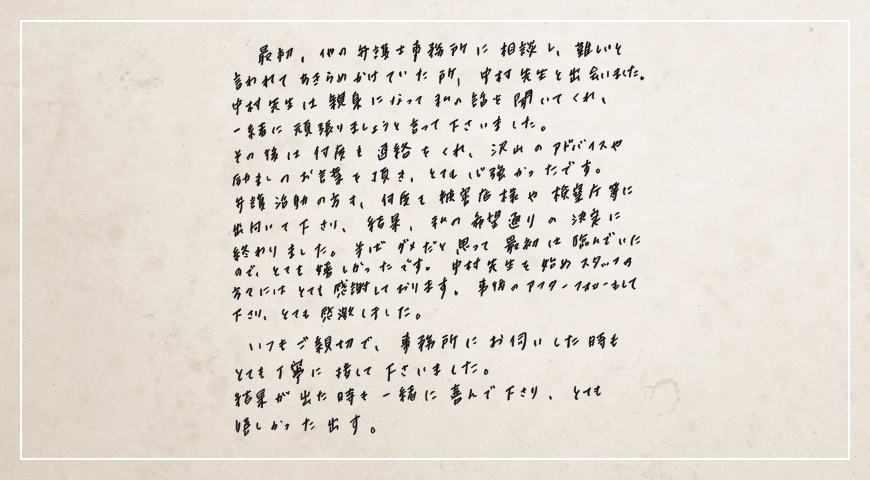 最初、他の弁護士事務所に相談し、難しいと
言われてあきらめかけていた所、中村先生と出会いました。
中村先生は親身になって私の話を聞いてくれ、
一緒に頑張りましょうと言って下さいました。
その後は何度も連絡をくれ、沢山のアドバイスや
励ましのお言葉を頂き、とても心強かったです。
弁護活動の方も、何度も被害店様や検察庁等に
出向いて下さり、結果、私の希望通りの決定に
終わりました。半ばダメだと思って最初は臨んでいた
ので、とても嬉しかったです。中村先生を始めスタッフの
方々にはとても感謝しております。事後のアフターフォローもして
下さり、とても感激しました。
いつもご親切で、事務所にお伺いした時も
とても丁寧に接して下さいました。
結果が出た時も一緒に喜んで下さり、とても
嬉しかった出す。